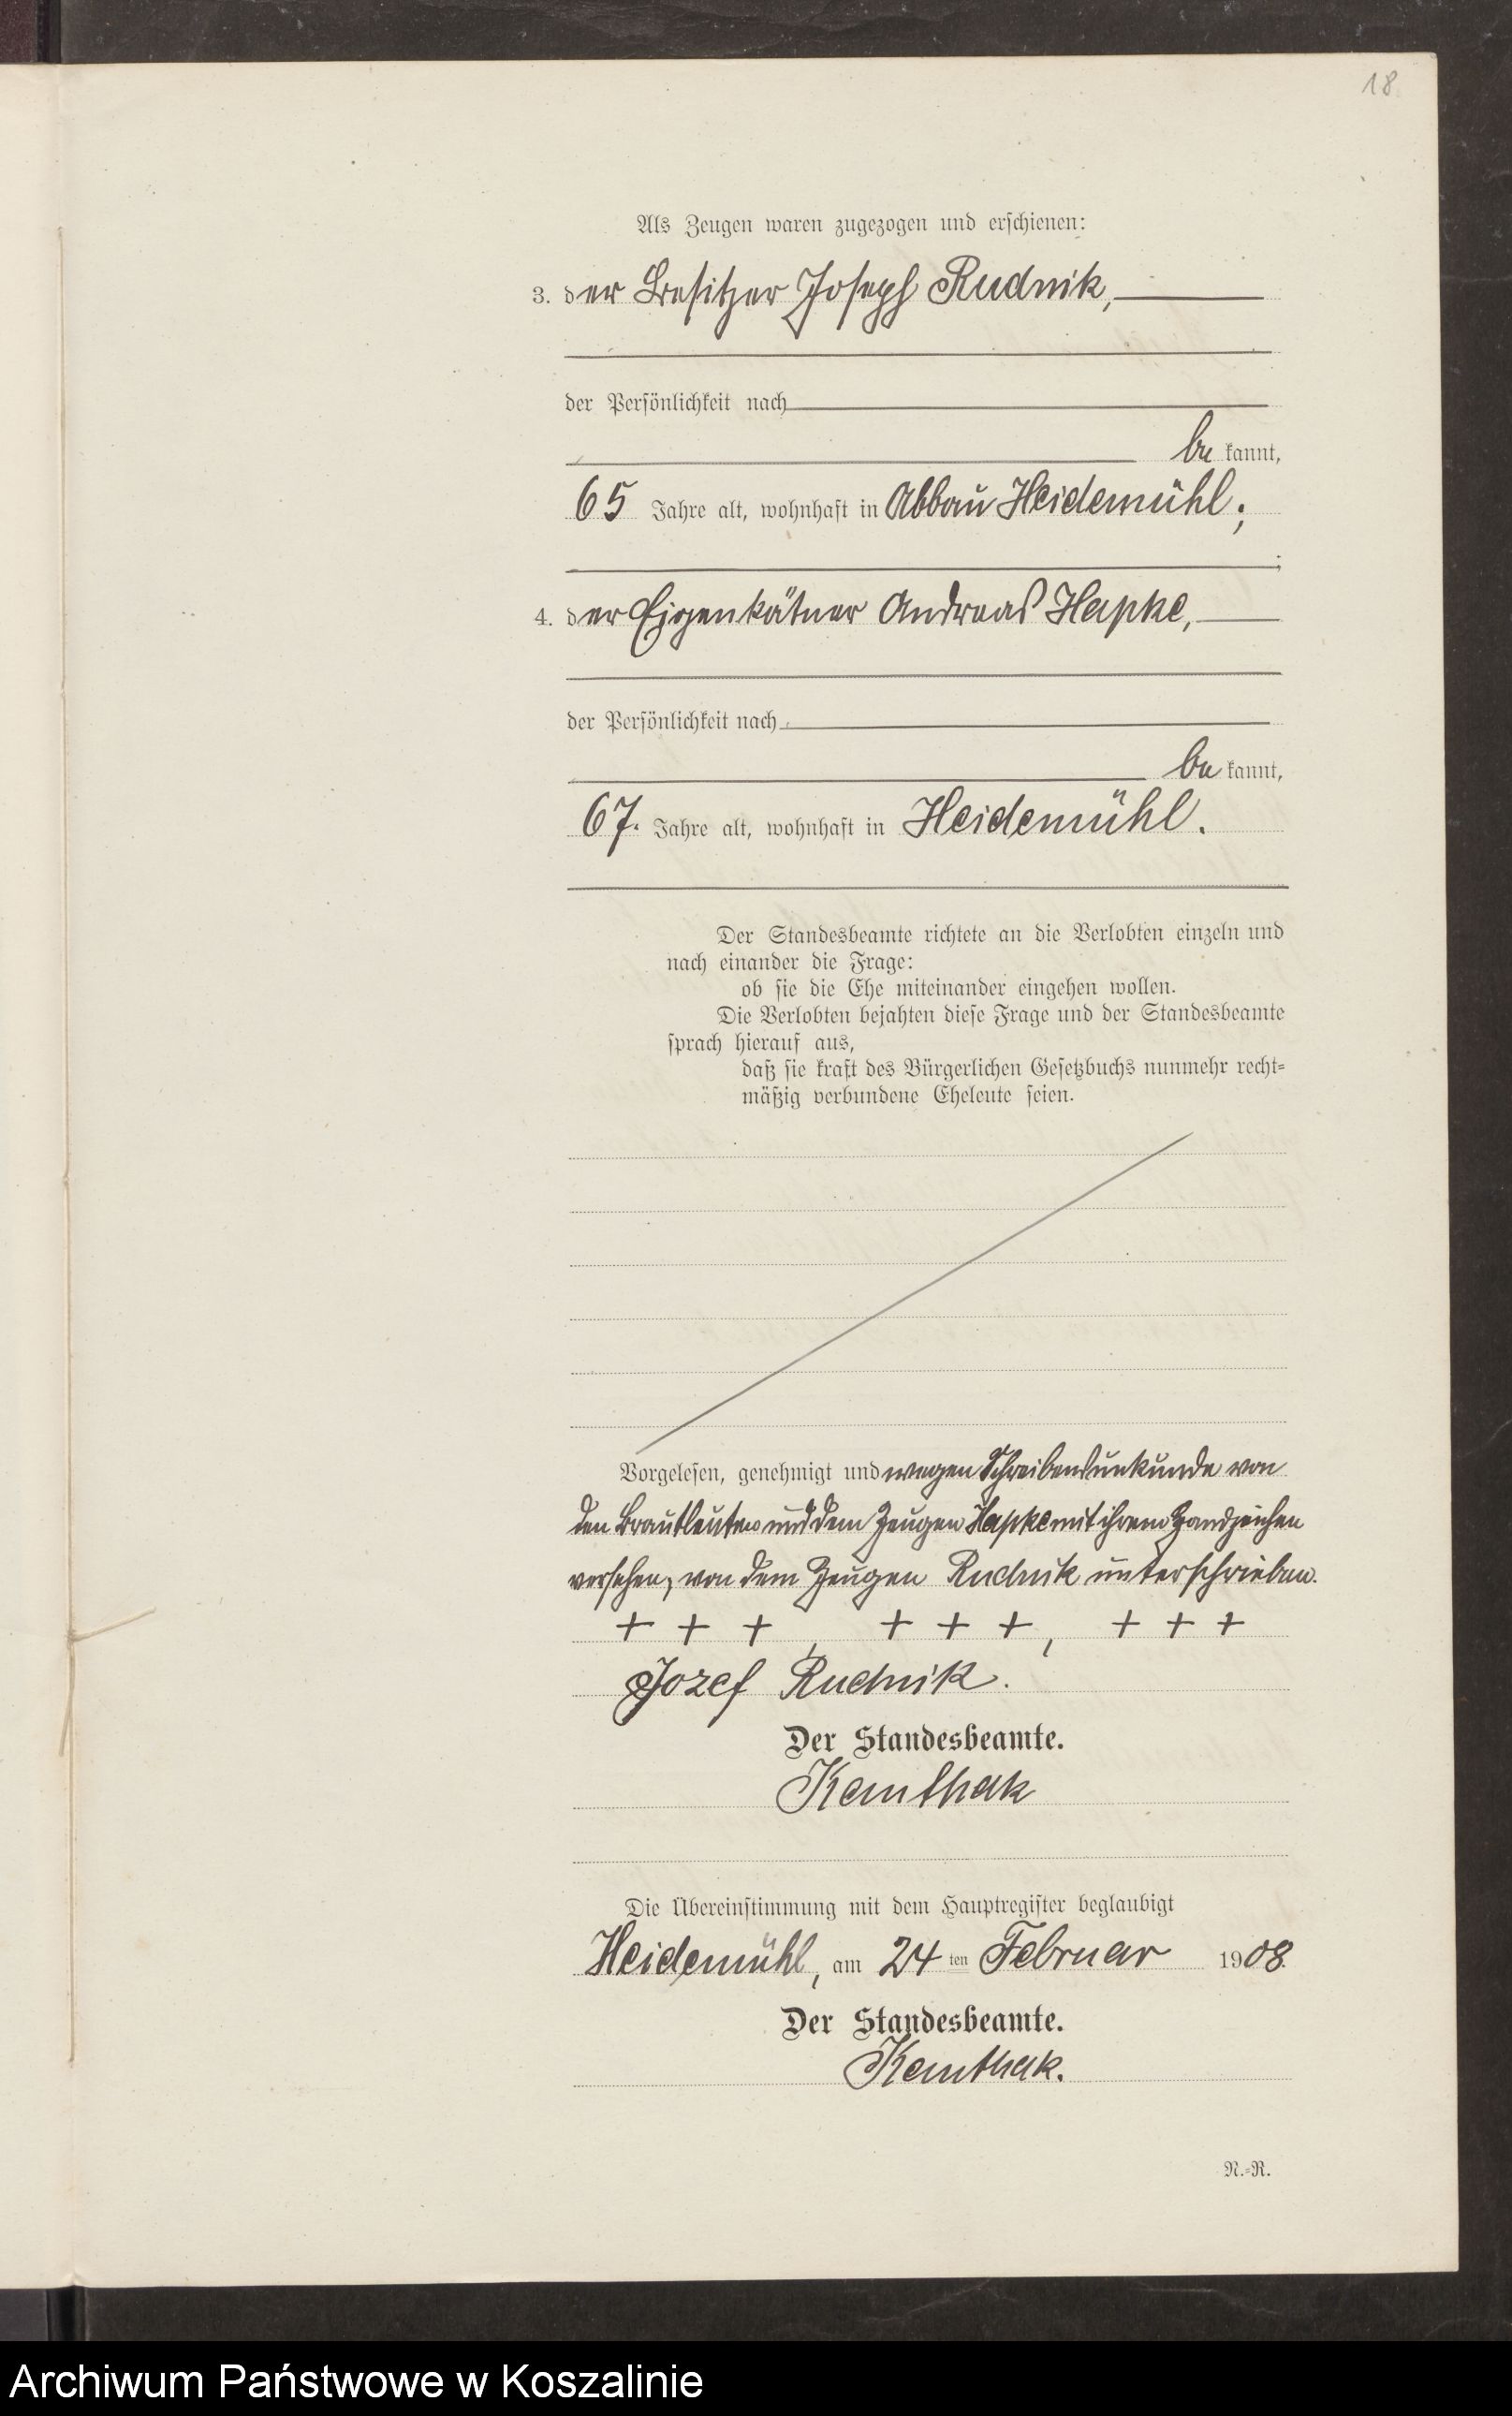 18
Als Zeugen waren zugezogen und erschienen:
3. der Besitzer Joseph Rudnik,
der Persönlichkeit nach
be kannt,
65 Jahre alt, wohnhaft in Abbau Heidemühl;
4. der Eigenkätner Andreas Hapke,
der Persönlichkeit nach
be kannt,
67. Jahre alt, wohnhaft in Heidemühl.
Der Standesbeamte richtete an die Verlobten einzeln und
nach einander die Frage:
ob sie die Ehe miteinander eingehen wollen.
Die Verlobten bejahten diese Frage und der Standesbeamte
sprach hierauf aus,
daß sie kraft des Bürgerlichen Gesetzbuchs nunmehr recht=
mäßig verbundene Eheleute seien.
Vorgelesen, genehmigt und wegen Schreibensunkunde von
den Brautleuten und dem Zeugen Hapke mit ihrem Handzeichen
versehen, von dem Zeugen Rudnik unterschrieben.
+ + +, + + +, + + +
Jozef Rudnik.
Der Standesbeamte.
Kemthak
Die Übereinstimmung mit dem Hauptregister beglaubigt
Heidemühl, am 24 ten Februar 1908.
Der Standesbeamte.
Kemthak.
N.=R.
Archiwum Państwowe w Koszalinie